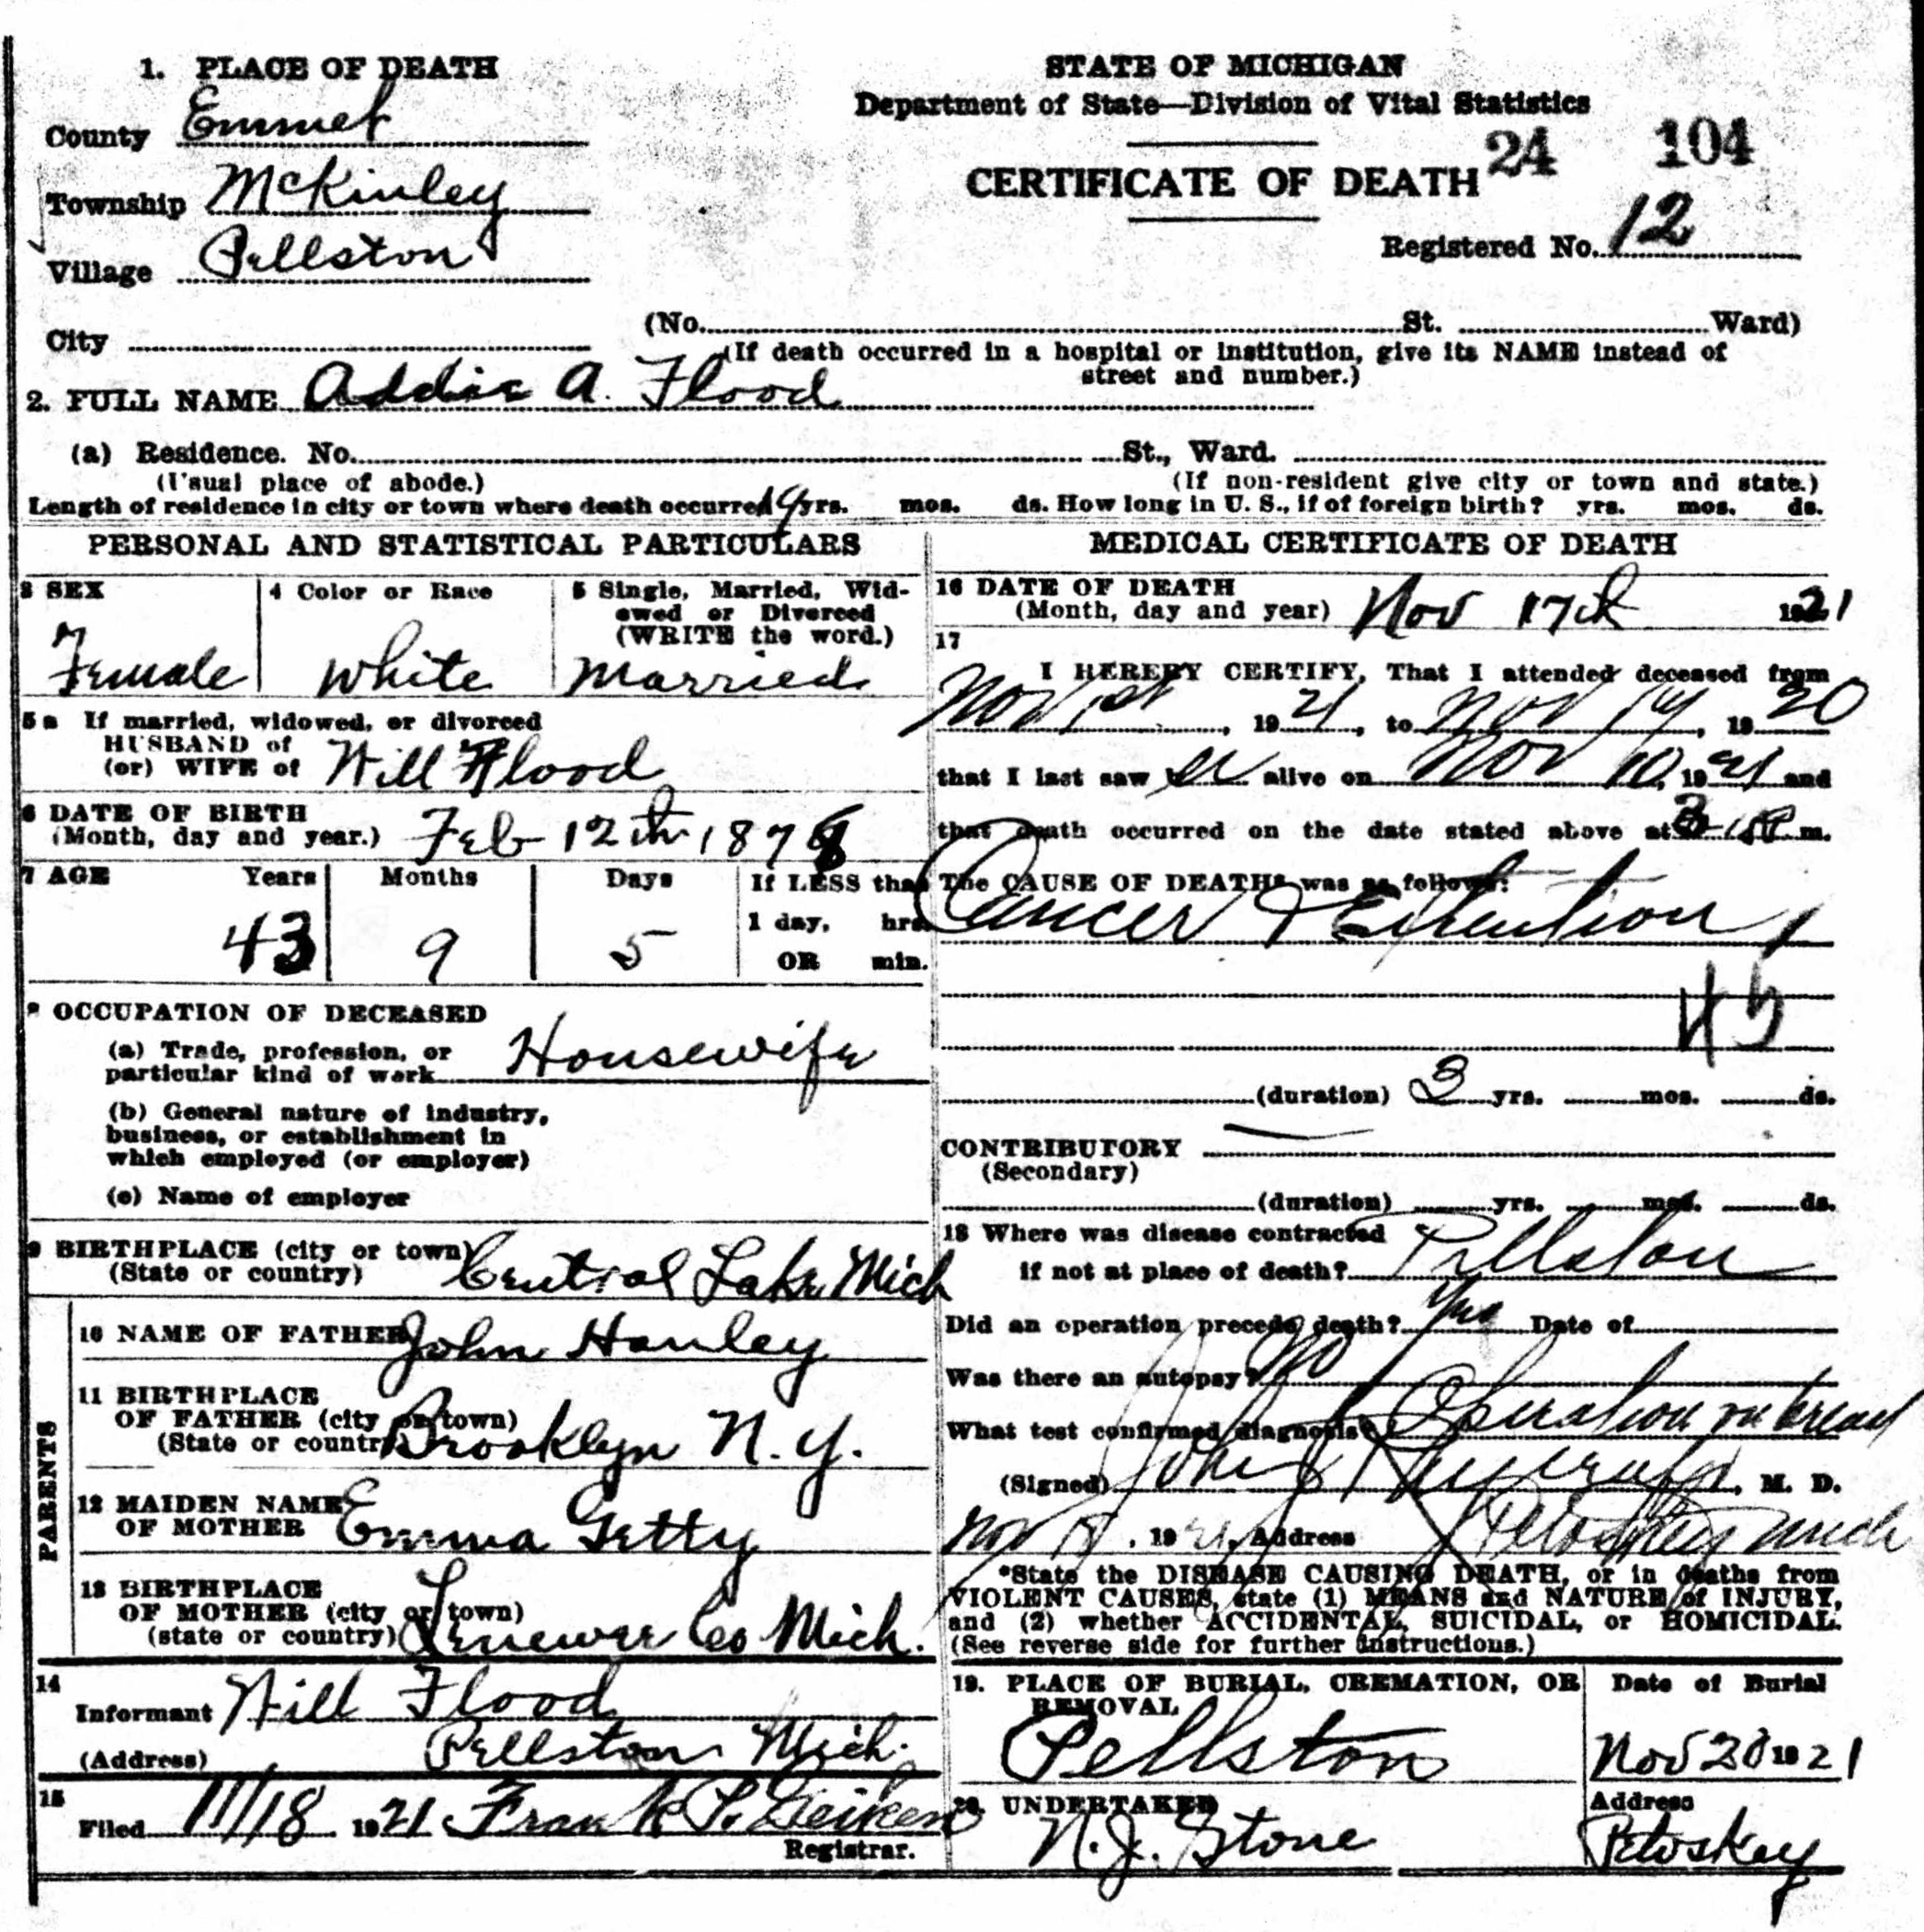 1. PLACE OF DEATH
County Emmet
Township McKinley
Village Pellston
City
STATE OF MICHIGAN
Department of State—Division of Vital Statistics
CERTIFICATE OF DEATH
24 104
Registered No. 12
(No. St. Ward)
(If death occurred in a hospital or institution, give its NAME instead of
street and number.)
2. FULL NAME Addie A. Flood
(a) Residence. No. St., Ward.
(Usual place of abode.) (If non-resident give city or town and state.)
Length of residence in city or town where death occurred yrs. mos. ds. How long in U. S., if of foreign birth? yrs. mos. ds.
PERSONAL AND STATISTICAL PARTICULARS
3 SEX
Female
4 Color or Race
White
5 Single, Married, Wid-
owed or Divorced
(WRITE the word.)
Married
5a If married, widowed, or divorced
HUSBAND of
(or) WIFE of Will Flood
6 DATE OF BIRTH
(Month, day and year.) Feb 12th 1878
7 AGE Years Months Days If LESS than
1 day, hrs.
OR min.
43 9 5
8 OCCUPATION OF DECEASED
(a) Trade, profession, or
particular kind of work Housewife
(b) General nature of industry,
business, or establishment in
which employed (or employer)
(c) Name of employer
9 BIRTHPLACE (city or town)
(State or country) Central Lake Mich
PARENTS
10 NAME OF FATHER John Hanley
11 BIRTHPLACE
OF FATHER (city or town)
(State or country) Brooklyn N.Y.
12 MAIDEN NAME
OF MOTHER Emma Getty
13 BIRTHPLACE
OF MOTHER (city or town)
(state or country) Lenewee Co Mich.
14
Informant Will Flood
(Address) Pellston Mich.
15
Filed 11/18 1921 Frank P. Geiken
Registrar.
MEDICAL CERTIFICATE OF DEATH
16 DATE OF DEATH
(Month, day and year) Nov 17th 1921
17
I HEREBY CERTIFY, That I attended deceased from
Nov 1st, 1921, to Nov 14, 1920
that I last saw her alive on Nov 10, 1921 and
that death occurred on the date stated above at 3 P m.
The CAUSE OF DEATH* was as follows:
Cancer & Extention
45
(duration) 3 yrs. mos. ds.
CONTRIBUTORY
(Secondary)
(duration) yrs. mos. ds.
18 Where was disease contracted
if not at place of death? Pellston
Did an operation precede death? Yes Date of
Was there an autopsy? No
What test confirmed diagnosis? Operation on breast
(Signed) John J Reycraft, M. D.
Nov, 1921, Address Petoskey Mich
*State the DISEASE CAUSING DEATH, or in deaths from
VIOLENT CAUSES, state (1) MEANS and NATURE of INJURY,
and (2) whether ACCIDENTAL, SUICIDAL, or HOMICIDAL.
(See reverse side for further instructions.)
19. PLACE OF BURIAL, CREMATION, OR
REMOVAL
Pellston
Date of Burial
Nov 20 1921
20. UNDERTAKER
N.J. Stone
Address
Petoskey